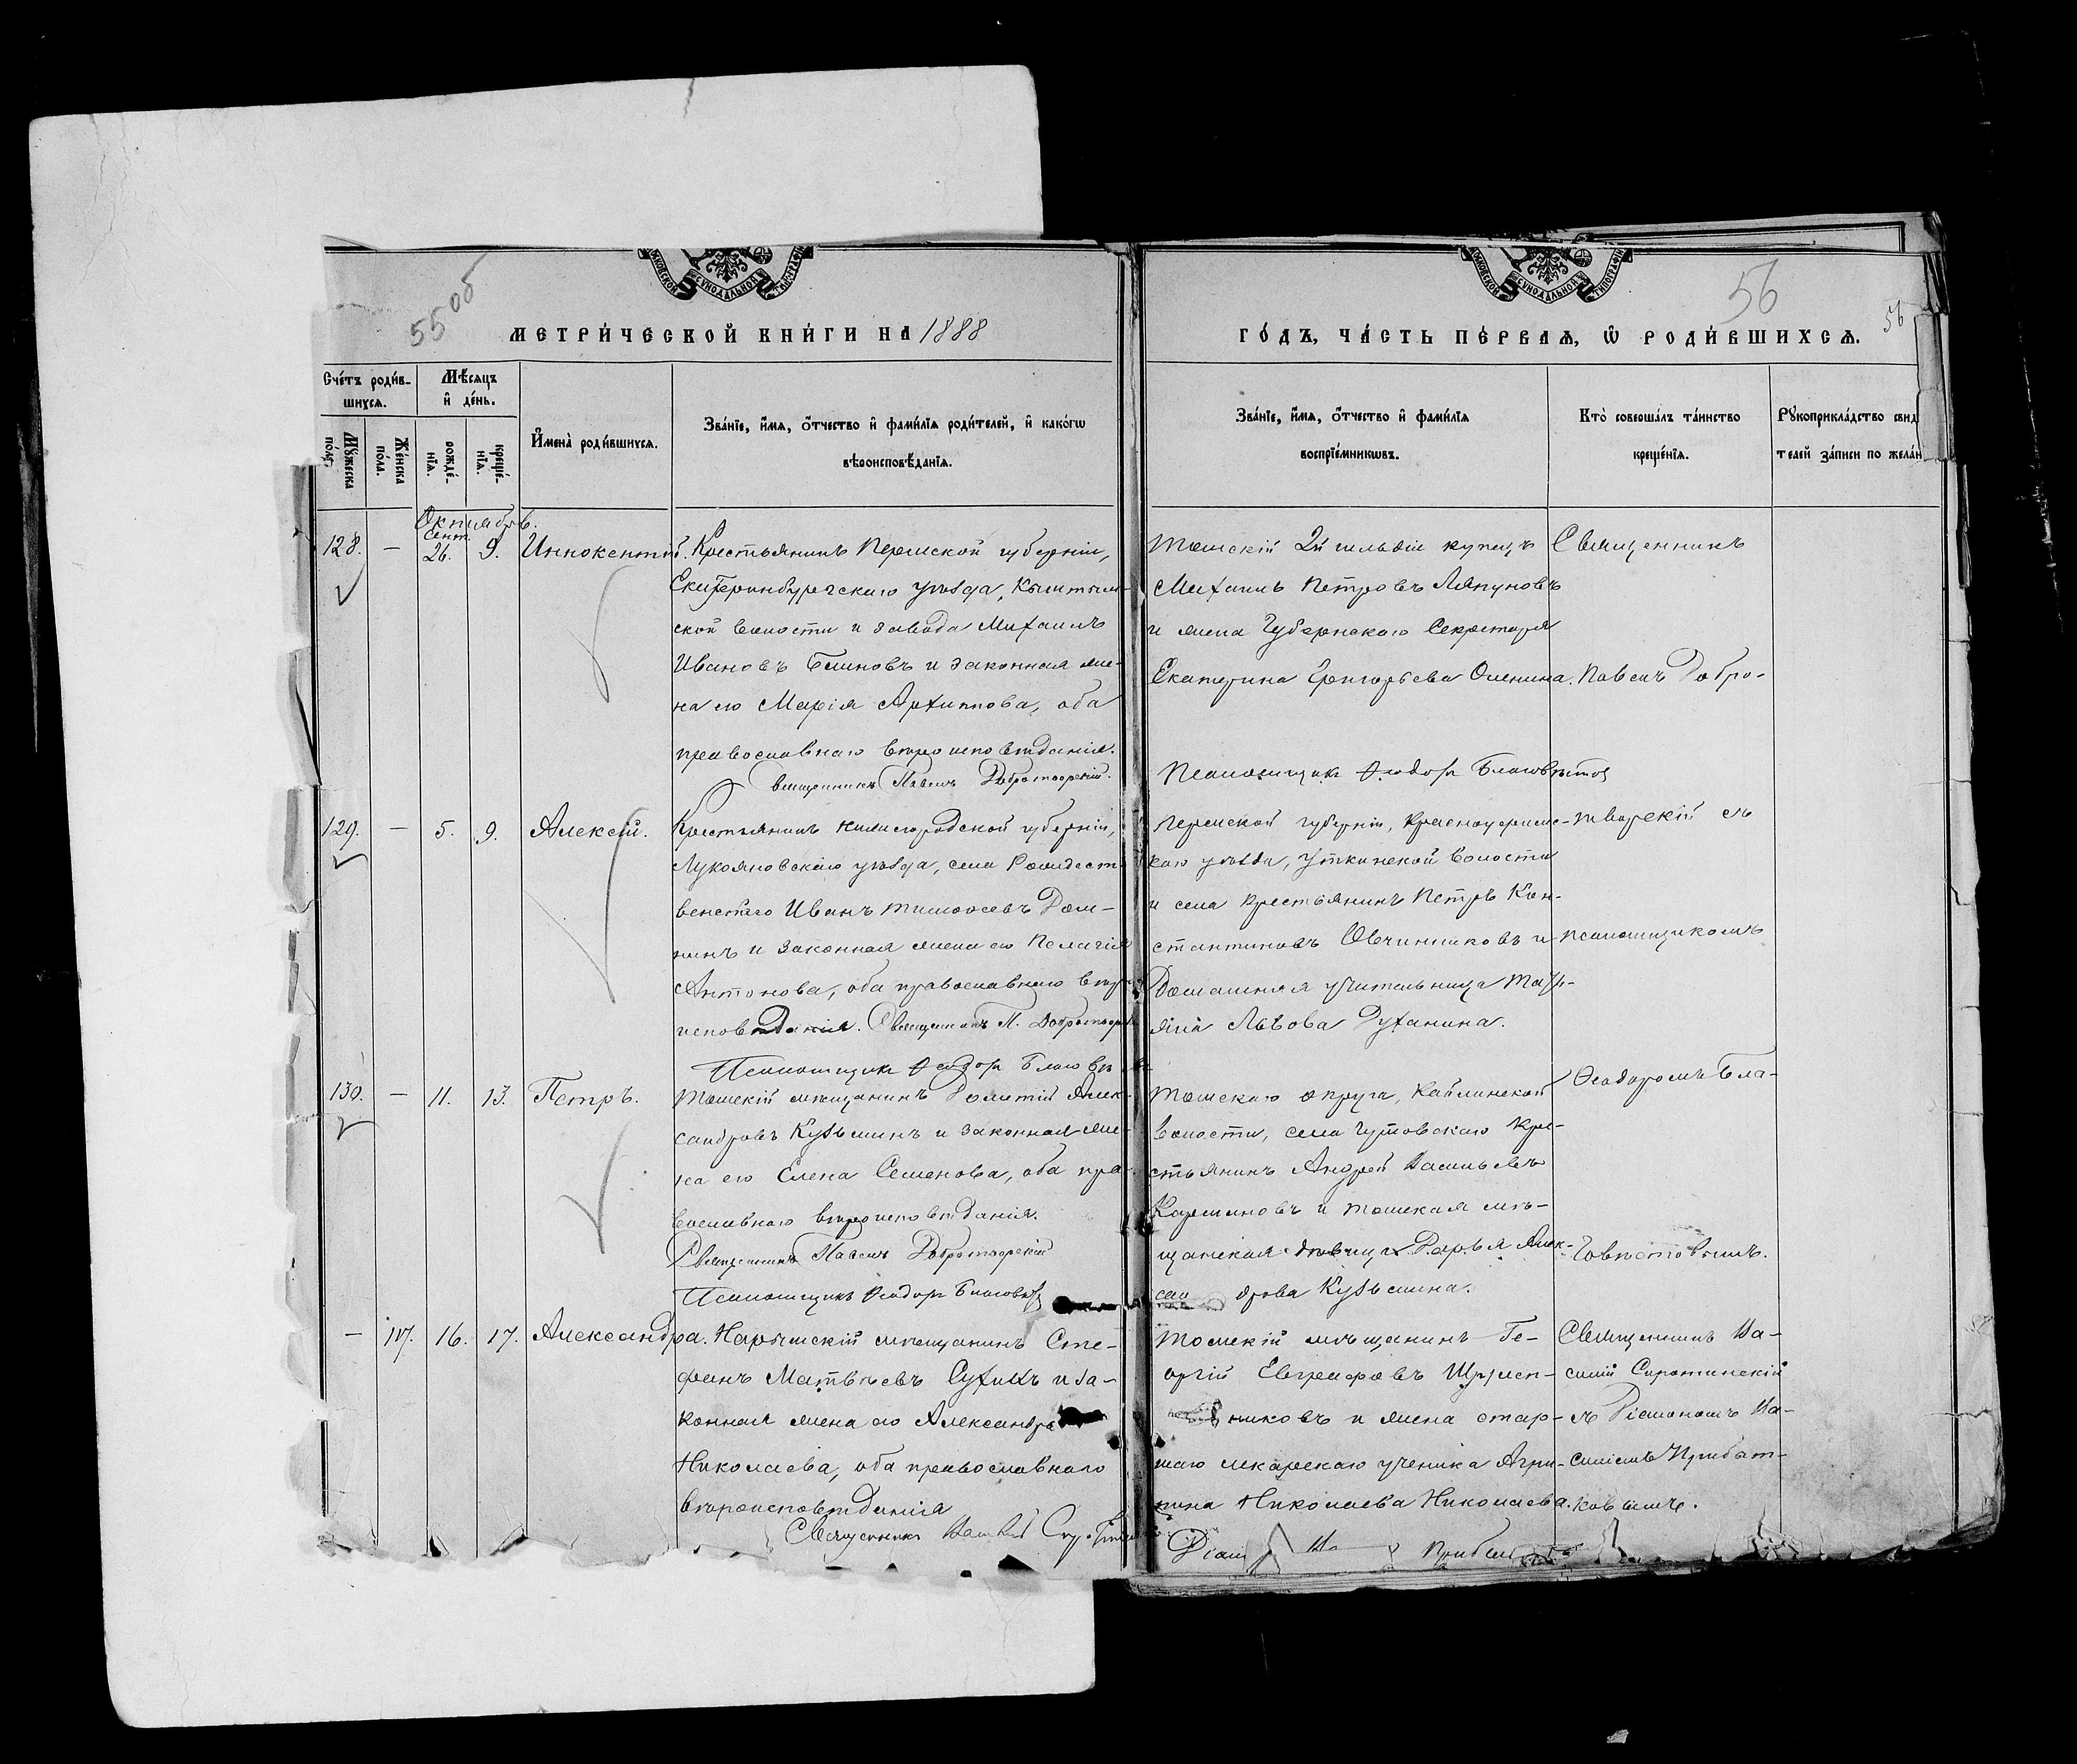 55об
56
56
МЕТРИЧЕСКОЙ КНИГИ НА 1888
ГОДЪ, ЧАСТЬ ПЕРВАЯ, Ѿ РОДИВШИХСЯ.
Счетъ родив-
шихся.
Мужеска
пола.
Женска
пола.
Мѣсяцъ
и день.
рожде-
нія.
креще-
нія.
Имена родившихся.
Званіе, имя, отчество и фамилія родителей, и какогѡ
вѣроисповѣданія.
Званіе, имя, отчество и фамилія
воспріемниковъ.
Кто совершалъ таинство
крещенія.
Рукоприкладство свид
телей записи по желан
Октиабрь.
128. — Сент. 26. 9. Иннокентій.
Крестьянинъ Пермской губерніи,
Екатеринбургскаго уѣзда, Кыштым-
ской волости и завода Михаилъ
Ивановъ Блиновъ и законная же-
на его Марія Архиппова, оба
православнаго вѣроисповѣданія.
Священникъ Павелъ Добротворскій.
Томскій 2й гильдіи купецъ
Михаилъ Петровъ Ляпуновъ
и жена Губернскаго Секретаря
Екатерина Григорьева Оленина.
Псаломщикъ Ѳеодоръ Благовѣстов
Священникъ
Павелъ Добро-
творскій съ
псаломщикомъ
Ѳеодоромъ Бла-
говѣстовымъ.
129. — 5. 9. Алексѣй.
Крестьянинъ Нижегородской губерніи,
Лукояновскаго уѣзда, села Рождест-
венскаго Иванъ Тимоѳеевъ Дом-
нинъ и законная жена его Пелагія
Антонова, оба православнаго вѣро
исповѣданія. Священникъ П. Добротвор
Псаломщикъ Ѳеодоръ Благовѣ
Пермской губерніи, Красноуфимс-
каго уѣзда, Уткинской волости
и села крестьянинъ Петръ Кон-
стантиновъ Овчинниковъ и
Домашняя учительница
Львова Духанина.
130. — 11. 13. Петръ.
Томскій мѣщанинъ Алек-
сандровъ Кузьминъ и законная же-
на его Елена Семенова, оба пра-
вославнаго вѣроисповѣданія.
Священникъ Павелъ Добротворскій
Псаломщикъ Ѳеодоръ Благовѣ
Томскаго округа, Кайлинской
волости, села кре-
стьянинъ Андрей Васильевъ
и томская мѣ-
щанская дѣвица Дарья Алек-
сан дрова Кузьмина.
— 117. 16. 17. Александра.
Нарымскій мѣщанинъ Сте-
фанъ Матвѣевъ Сухихъ и за-
конная жена его Александра
Николаева, оба православнаго
вѣроисповѣданія
Священникъ
Томскій мѣщанинъ Ге-
оргій Евграфовъ
никовъ и жена стар-
шаго лекарскаго ученика Агри-
пина Николаева Николаева.
Священникъ Ва-
силій Сиротинскій
съ Діакономъ Ва-
силіемъ Прибыт-
ковымъ.